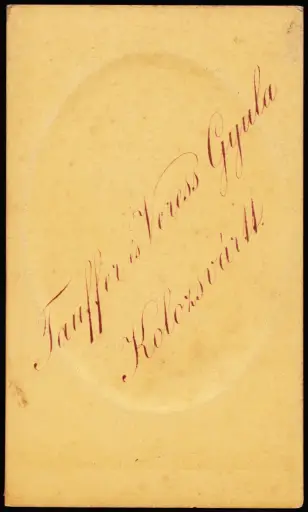 Tauffer és Veress Gyula
Kolozsvártt.